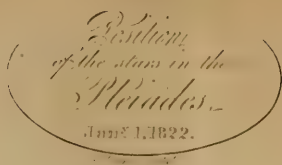 Positions
of the stars in the
Pleiades.
Jany. 1, 1822.